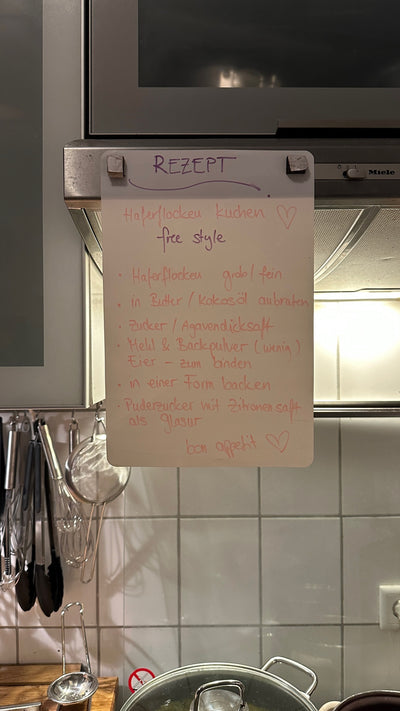 REZEPT
Miele
Haferflocken kuchen
free style
• Haferflocken grob / fein
• in Butter / Kokosöl anbraten
• Zucker / Agavendicksaft
• Mehl & Backpulver (wenig)
Eier - zum binden
• in einer Form backen
• Puderzucker mit Zitronensaft
als glasur
bon appetit